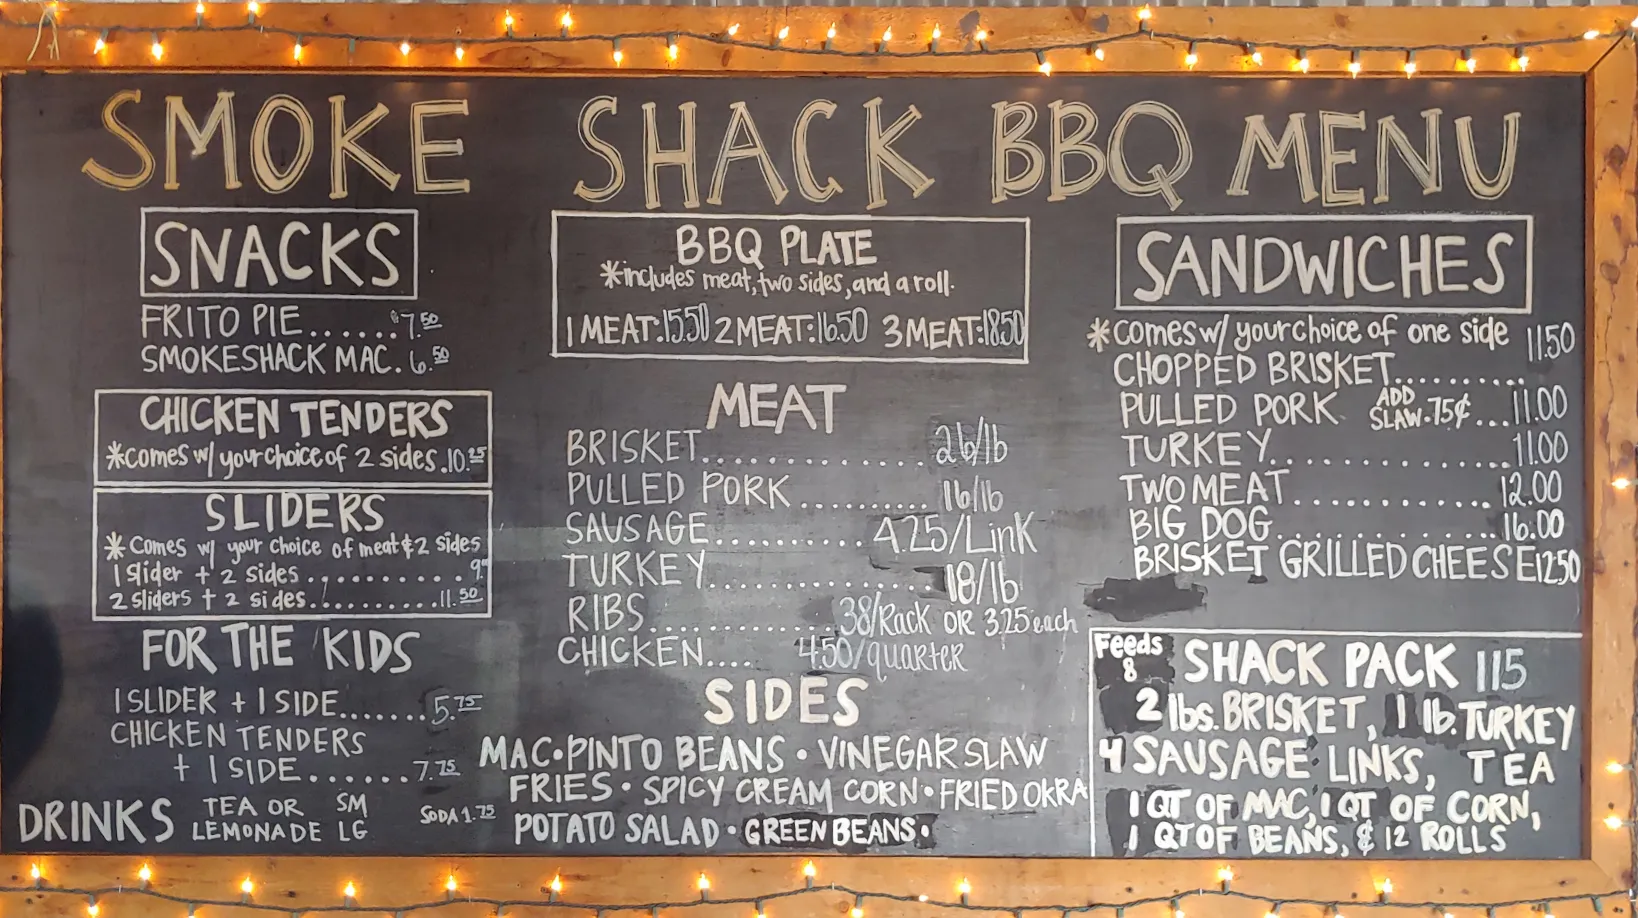 SMOKE SHACK BBQ MENU
SNACKS
FRITO PIE......$7.50
SMOKESHACK MAC.6.50
CHICKEN TENDERS
*comes w/ your choice of 2 sides.10.25
SLIDERS
*Comes w/ your choice of meat & 2 sides
1 slider + 2 sides...........9.
2 sliders + 2 sides..........11.50
FOR THE KIDS
1 SLIDER + 1 SIDE.......5.75
CHICKEN TENDERS
+ 1 SIDE.......7.75
DRINKS
TEA OR SM
LEMONADE LG
SODA 1.75
BBQ PLATE
*includes meat, two sides, and a roll.
1 MEAT:15.50 2 MEAT:16.50 3 MEAT:18.50
MEAT
BRISKET.............26/lb
PULLED PORK..........16/lb
SAUSAGE..........4.25/Link
TURKEY..............18/lb
RIBS.............38/Rack OR 3.25 each
CHICKEN.... 4.50/quarter
SIDES
MAC • PINTO BEANS • VINEGAR SLAW
FRIES • SPICY CREAM CORN • FRIED OKRA
POTATO SALAD • GREEN BEANS •
SANDWICHES
*comes w/ your choice of one side
CHOPPED BRISKET..........11.50
PULLED PORK ADD SLAW .75¢...11.00
TURKEY................11.00
TWO MEAT.............12.00
BIG DOG..............16.00
BRISKET GRILLED CHEESE 12.50
Feeds 8
SHACK PACK 115
2 lbs. BRISKET, 1 lb. TURKEY
4 SAUSAGE LINKS, TEA
1 QT OF MAC, 1 QT OF CORN,
1 QT OF BEANS, & 12 ROLLS